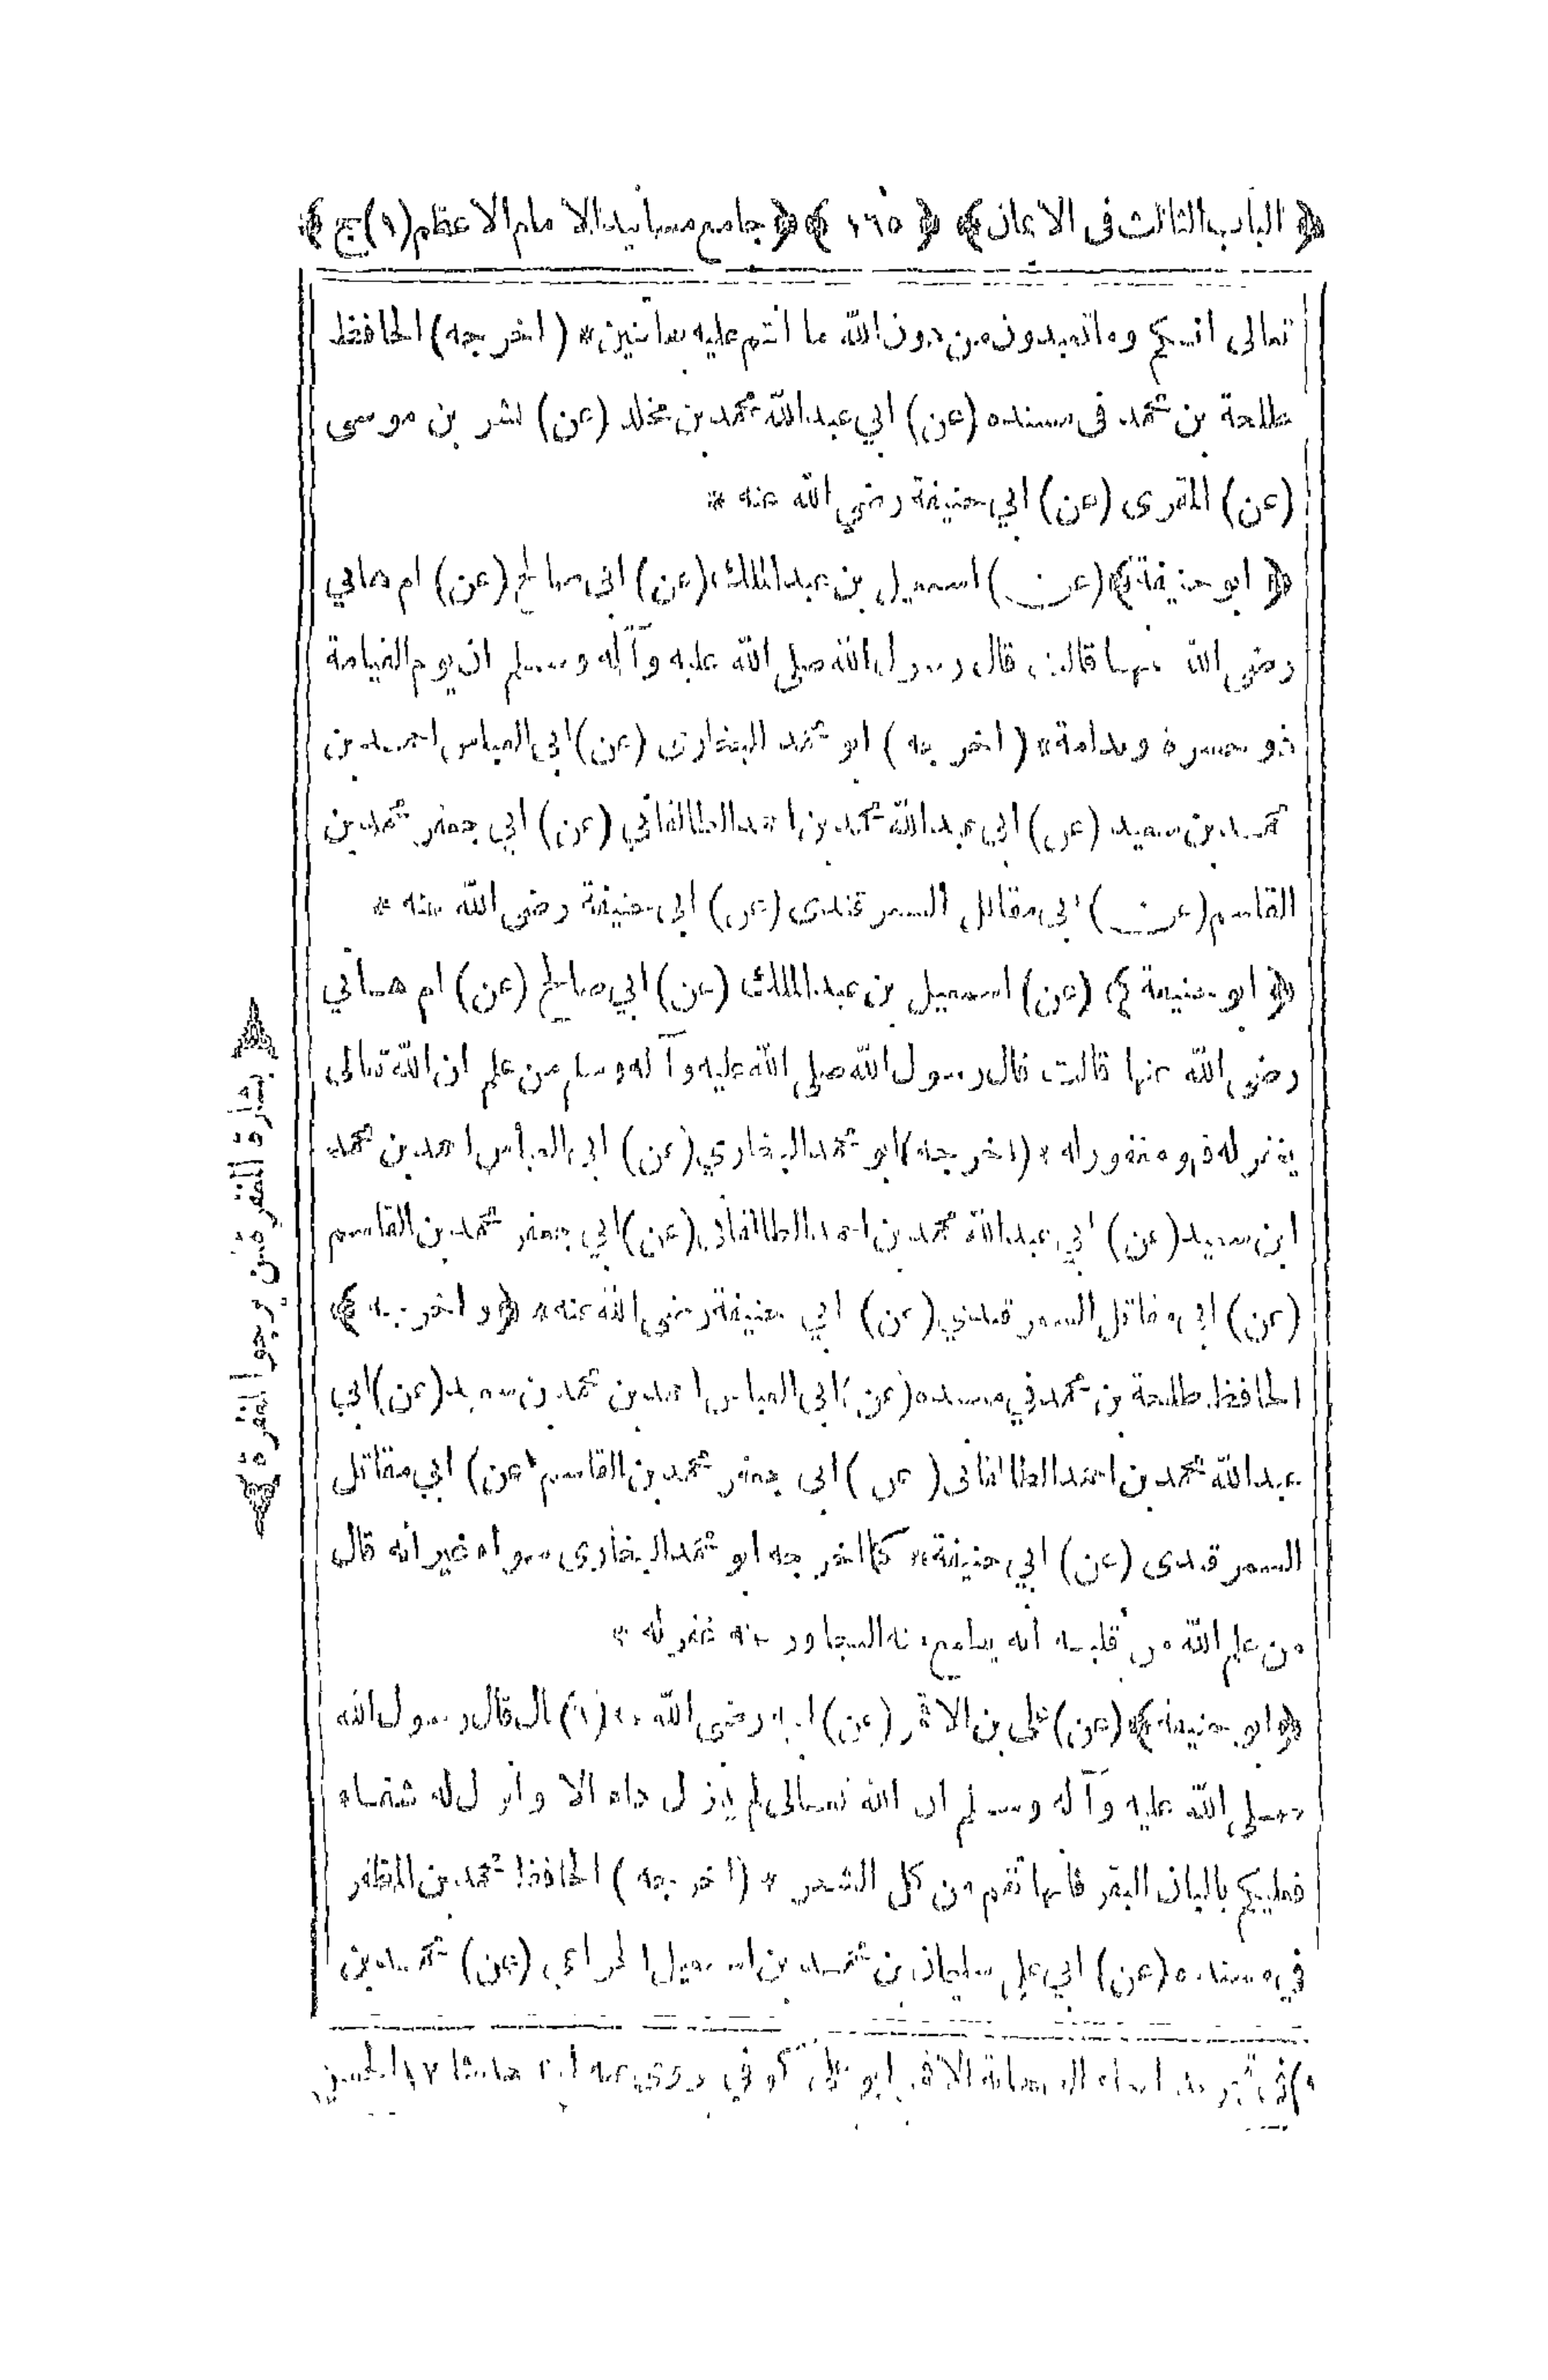 ﴿ الباب الثالث فى الايمان ﴾ ﴿ ١٦٥ ﴾ ﴿ جامع مسانيد الامام الاعظم (١) ج ﴾
تعالى انكم وماتعبدون من دون الله ما انتم عليه بفاتنين * ( اخرجه ) الحافظ
طلحة بن محمد فى مسنده (عن) ابي عبد الله محمد بن مخلد (عن) بشر بن موسى
(عن) المقرى (عن) ابي حنيفة رضي الله عنه *
﴿ ابو حنيفة ﴾ (عن) اسمعيل بن عبدالملك (عن) ابى صالح (عن) ام هاني
رضى الله عنها قالت قال رسول الله صلى الله عليه وآله وسلم ان يوم القيامة
ذو حسرة وندامة * ( اخرجه ) ابو محمد البخارى (عن) ابى العباس احمد بن
محمد بن سعيد (عن) ابى عبد الله محمد بن احمد الطالقاني (عن) ابي جعفر محمد بن
القاسم (عن) ابى مقاتل السمرقندى (عن) ابى حنيفة رضى الله عنه *
﴿ ابو حنيفة ﴾ (عن) اسمعيل بن عبد الملك (عن) ابي صالح (عن) ام هاني
رضى الله عنها قالت قال رسول الله صلى الله عليه وآله وسلم من علم ان الله تعالى
يغفر له فهو مغفور له * (اخرجه) ابو محمد البخاري (عن) ابى العباس احمد بن محمد
ابن سعيد (عن) ابي عبد الله محمد بن احمد الطالقانى (عن) ابي جعفر محمد بن القاسم
(عن) ابى مقاتل السمرقندي (عن) ابي حنيفة رضى الله عنه * ﴿ واخرجه ﴾
الحافظ طلحة بن محمد في مسنده (عن) ابى العباس احمد بن محمد بن سعيد (عن) ابي
عبد الله محمد بن احمد الطالقانى (عن) ابى جعفر محمد بن القاسم (عن) ابي مقاتل
السمرقندى (عن) ابي حنيفة * كما اخرجه ابو محمد البخارى سواء غير انه قال
من علم الله من قلبه انه التجاوز غفر له *
﴿ ابو حنيفة ﴾ (عن) على بن الاقمر (عن) رضى الله (١) قال قال رسول الله
صلى الله عليه وآله وسلم ان الله تعالى لم ينزل داء الا وانزل له شفاء
فعليكم بالبان البقر فانها تقم من كل الشجر * (اخرجه) الحافظ محمد بن المظفر
في مسنده (عن) ابي على سليمان بن محمد بن اسمعيل (عن) محمد بن
بشارة للمقرفين ويرجوا المغفرة